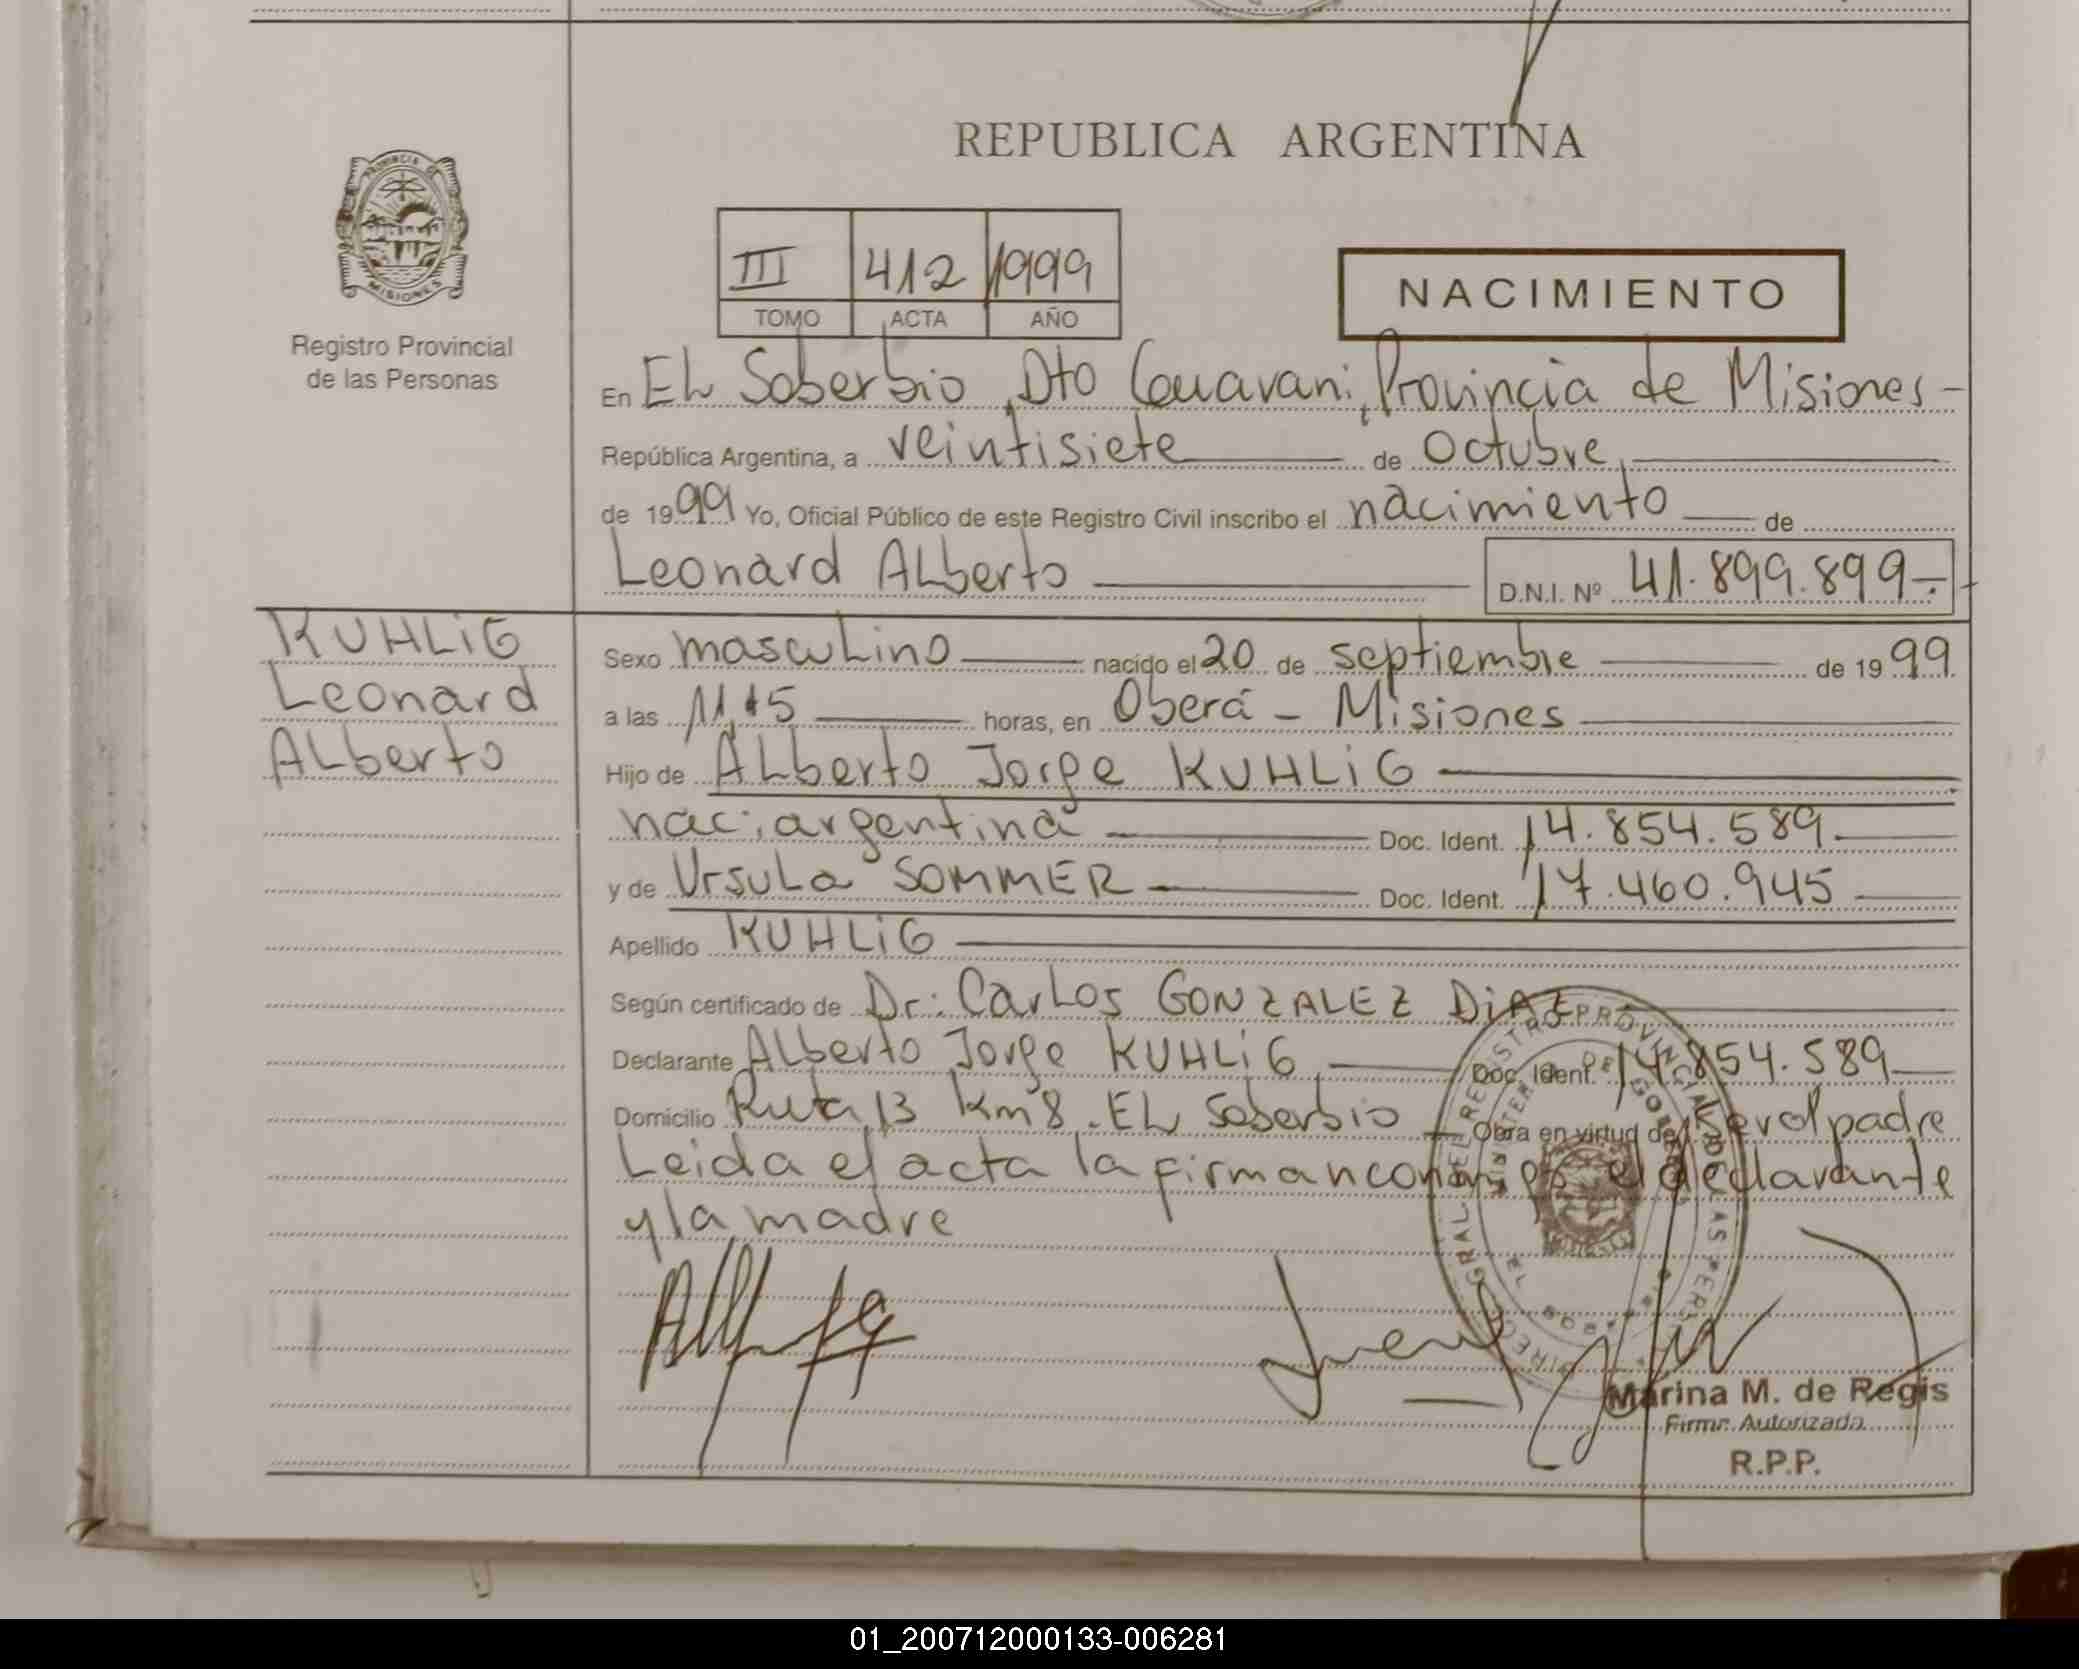 REPUBLICA ARGENTINA
PROVINCIA DE
MISIONES
Registro Provincial
de las Personas
III 412 1999
TOMO ACTA AÑO
NACIMIENTO
En EL Soberbio, Dto Guarani, Provincia de Misiones -
República Argentina, a veintisiete de Octubre,
de 1999 Yo, Oficial Público de este Registro Civil inscribo el nacimiento de
Leonard ALberto D.N.I. Nº 41.899.899.-
KUHLiG
Leonard
ALberto
Sexo mascuLino nacido el 20 de septiembre de 1999
a las horas, en Oberá - Misiones
Hijo de ALberto Jorge KUHLiG
nac: argentina Doc. Ident. 14.854.589
y de UrsuLa SOMMER Doc. Ident. 17.460.945
Apellido KUHLiG
Según certificado de Dr: CarLos GONZALEZ DiAZ
Declarante ALberto Jorge KUHLiG Doc. Ident. 14.854.589
Domicilio Ruta 13 Km 8. EL Soberbio Obra en virtud de ser el padre
Leida el acta la firman el declarante
y la madre
Marina M. de Regis
Firma Autorizada
R.P.P.
01_200712000133-006281